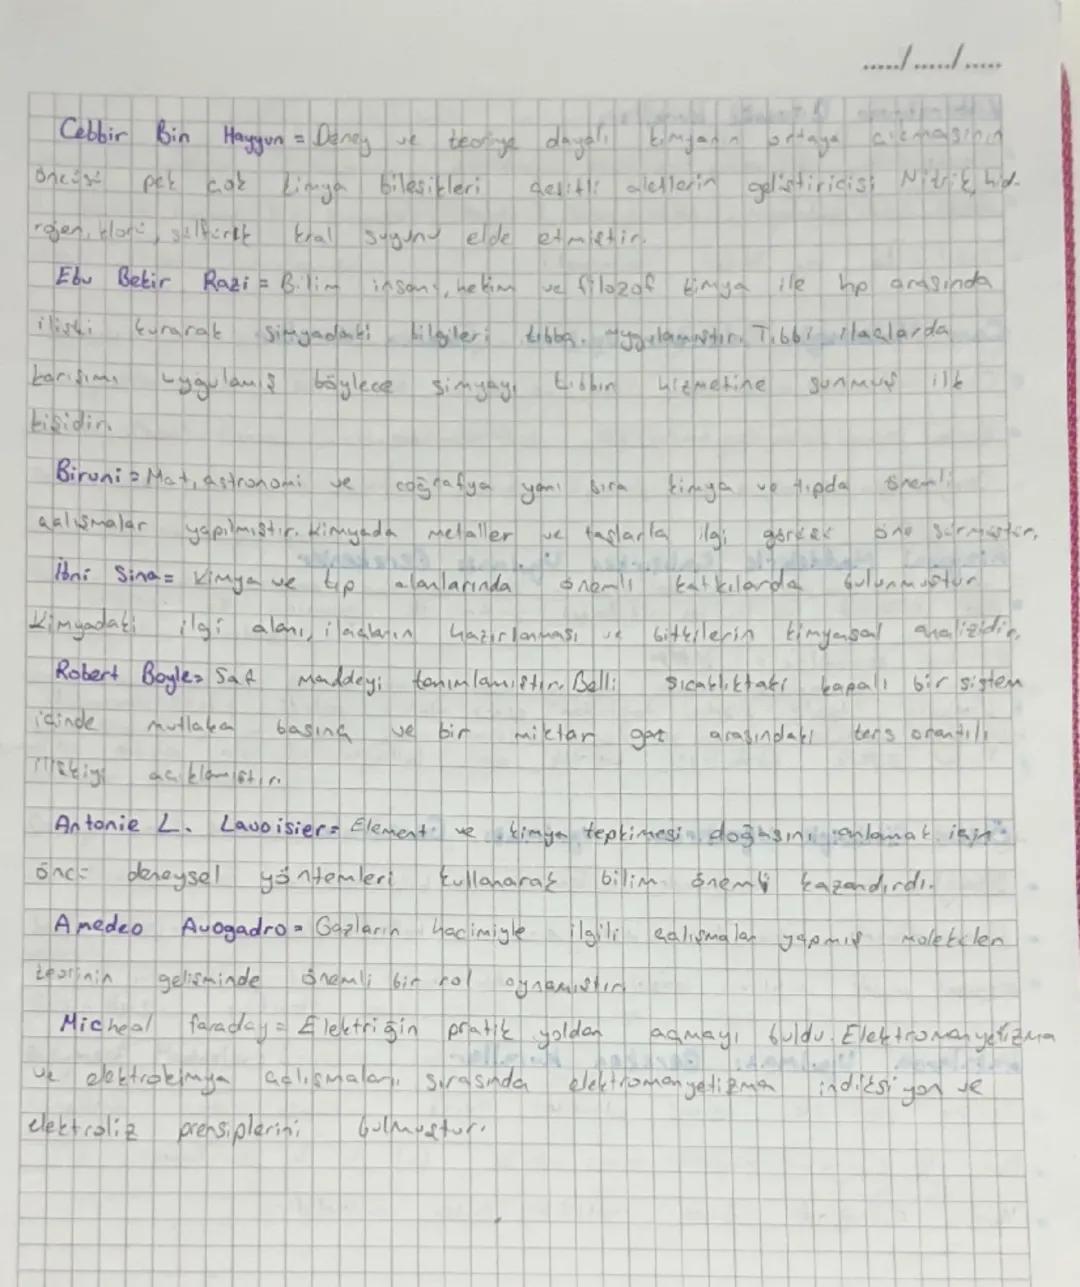 ...../...../.....
Cebbir Bin Hayyun = Deney ve teoriye dayalı kimyanın ortaya çıkmasının
öncüsü pek çok kimya bileşikleri çeşitli aletlerin geliştiricisi Nitrik, hid-
rojen, klorü, sülfürik kral suyunu elde etmiştir.
Ebu Bekir Razi = Bilim insanı, hekim ve filozof kimya ile tıp arasında
ilişki kurarak simyadaki bilgileri tıbba uygulamıştır. Tıbbi ilaçlarda
karışımı uygulamış böylece simyayı tıbbın hizmetine sunmuş ilk
kişidir.
Biruni = Mat, astronomi ve coğrafya yanı sıra kimya ve tıpda önemli
çalışmalar yapılmıştır. Kimyada metaller ve taşlarla ilgi görüş öne sürmüştür.
İbni Sina = Kimya ve tıp alanlarında önemli katkılarda bulunmuştur
Kimyadaki ilgi alanı, ilaçların hazırlanması ve bitkilerin kimyasal analizidir.
Robert Boyle = Saf maddeyi tanımlamıştır. Belli sıcaklıktaki kapalı bir sistem
içinde mutlaka basınç ve bir miktar gaz arasındaki ters orantılı
ilişkiyi açıklamıştır.
Antonie L. Lavoisier = Element ve kimya tepkimesi doğasını anlamak için
önce deneysel yöntemleri kullanarak bilim önemi kazandırdı.
Amedeo Avogadro = Gazların hacimiyle ilgili çalışmalar yapmış moleküler
teorinin gelişminde önemli bir rol oynamıştır.
Micheal faraday = Elektriğin pratik yoldan açmayı buldu. Elektromanyetizma
ve elektrokimya çalışmaları sırasında elektromanyetizma indüksiyon ve
elektroliz prensiplerini bulmuştur.